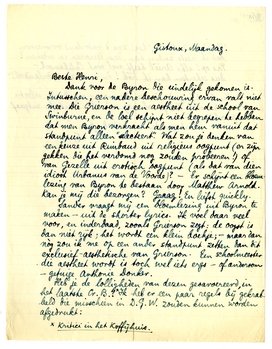 Gistoux, Maandag.
Beste Henri,
Dank voor de Byron die eindelijk gekomen is.
Intusschen, een nadere beschouwing ervan valt niet
mee. Die Grierson is een aestheet uit de school van
Swinburne, en de loei schijnt niet begrepen te hebben
dat men Byron verkracht als men hem vanuit dat
standpunt alleen "aandient". Wat zou je denken van
een keuze uit Rimbaud uit religieus oogpunt (er zijn
gekken die het verdomd nog zouden probeeren!) of
van Gezelle uit erotisch oogpunt (als dat van dien
idioot Urbanus van de Voorde)? – Er schijnt een
lezing van Byron te bestaan door Matthew Arnold.
Kan je mij die bezorgen? Graag; en liefst quickly.
Ander vraagt mij een bloemlezing uit Byron te
maken – uit de shorter lyrics. Ik voel daar veel
voor, en inderdaad, zooals Grierson zegt: de oogst is
dan niet rijk; het wordt een klein boekje; – maar dan
nog zou ik me op een ander standpunt zetten dan het
exclusief aesthetische van Grierson. Een schoolmeester
die aestheet wordt is toch wel iets ergs – of andersom
– getuige Anthonie Donker.
Heb je de lolligheden van dezen gesavoureerd, in
het laatste Cr. B.? Ik heb er een paar regels bij gekrabbeld
die misschien in D.G.W. zouden kunnen worden
afgedrukt:
* Kritiek in het Koffijhuis.